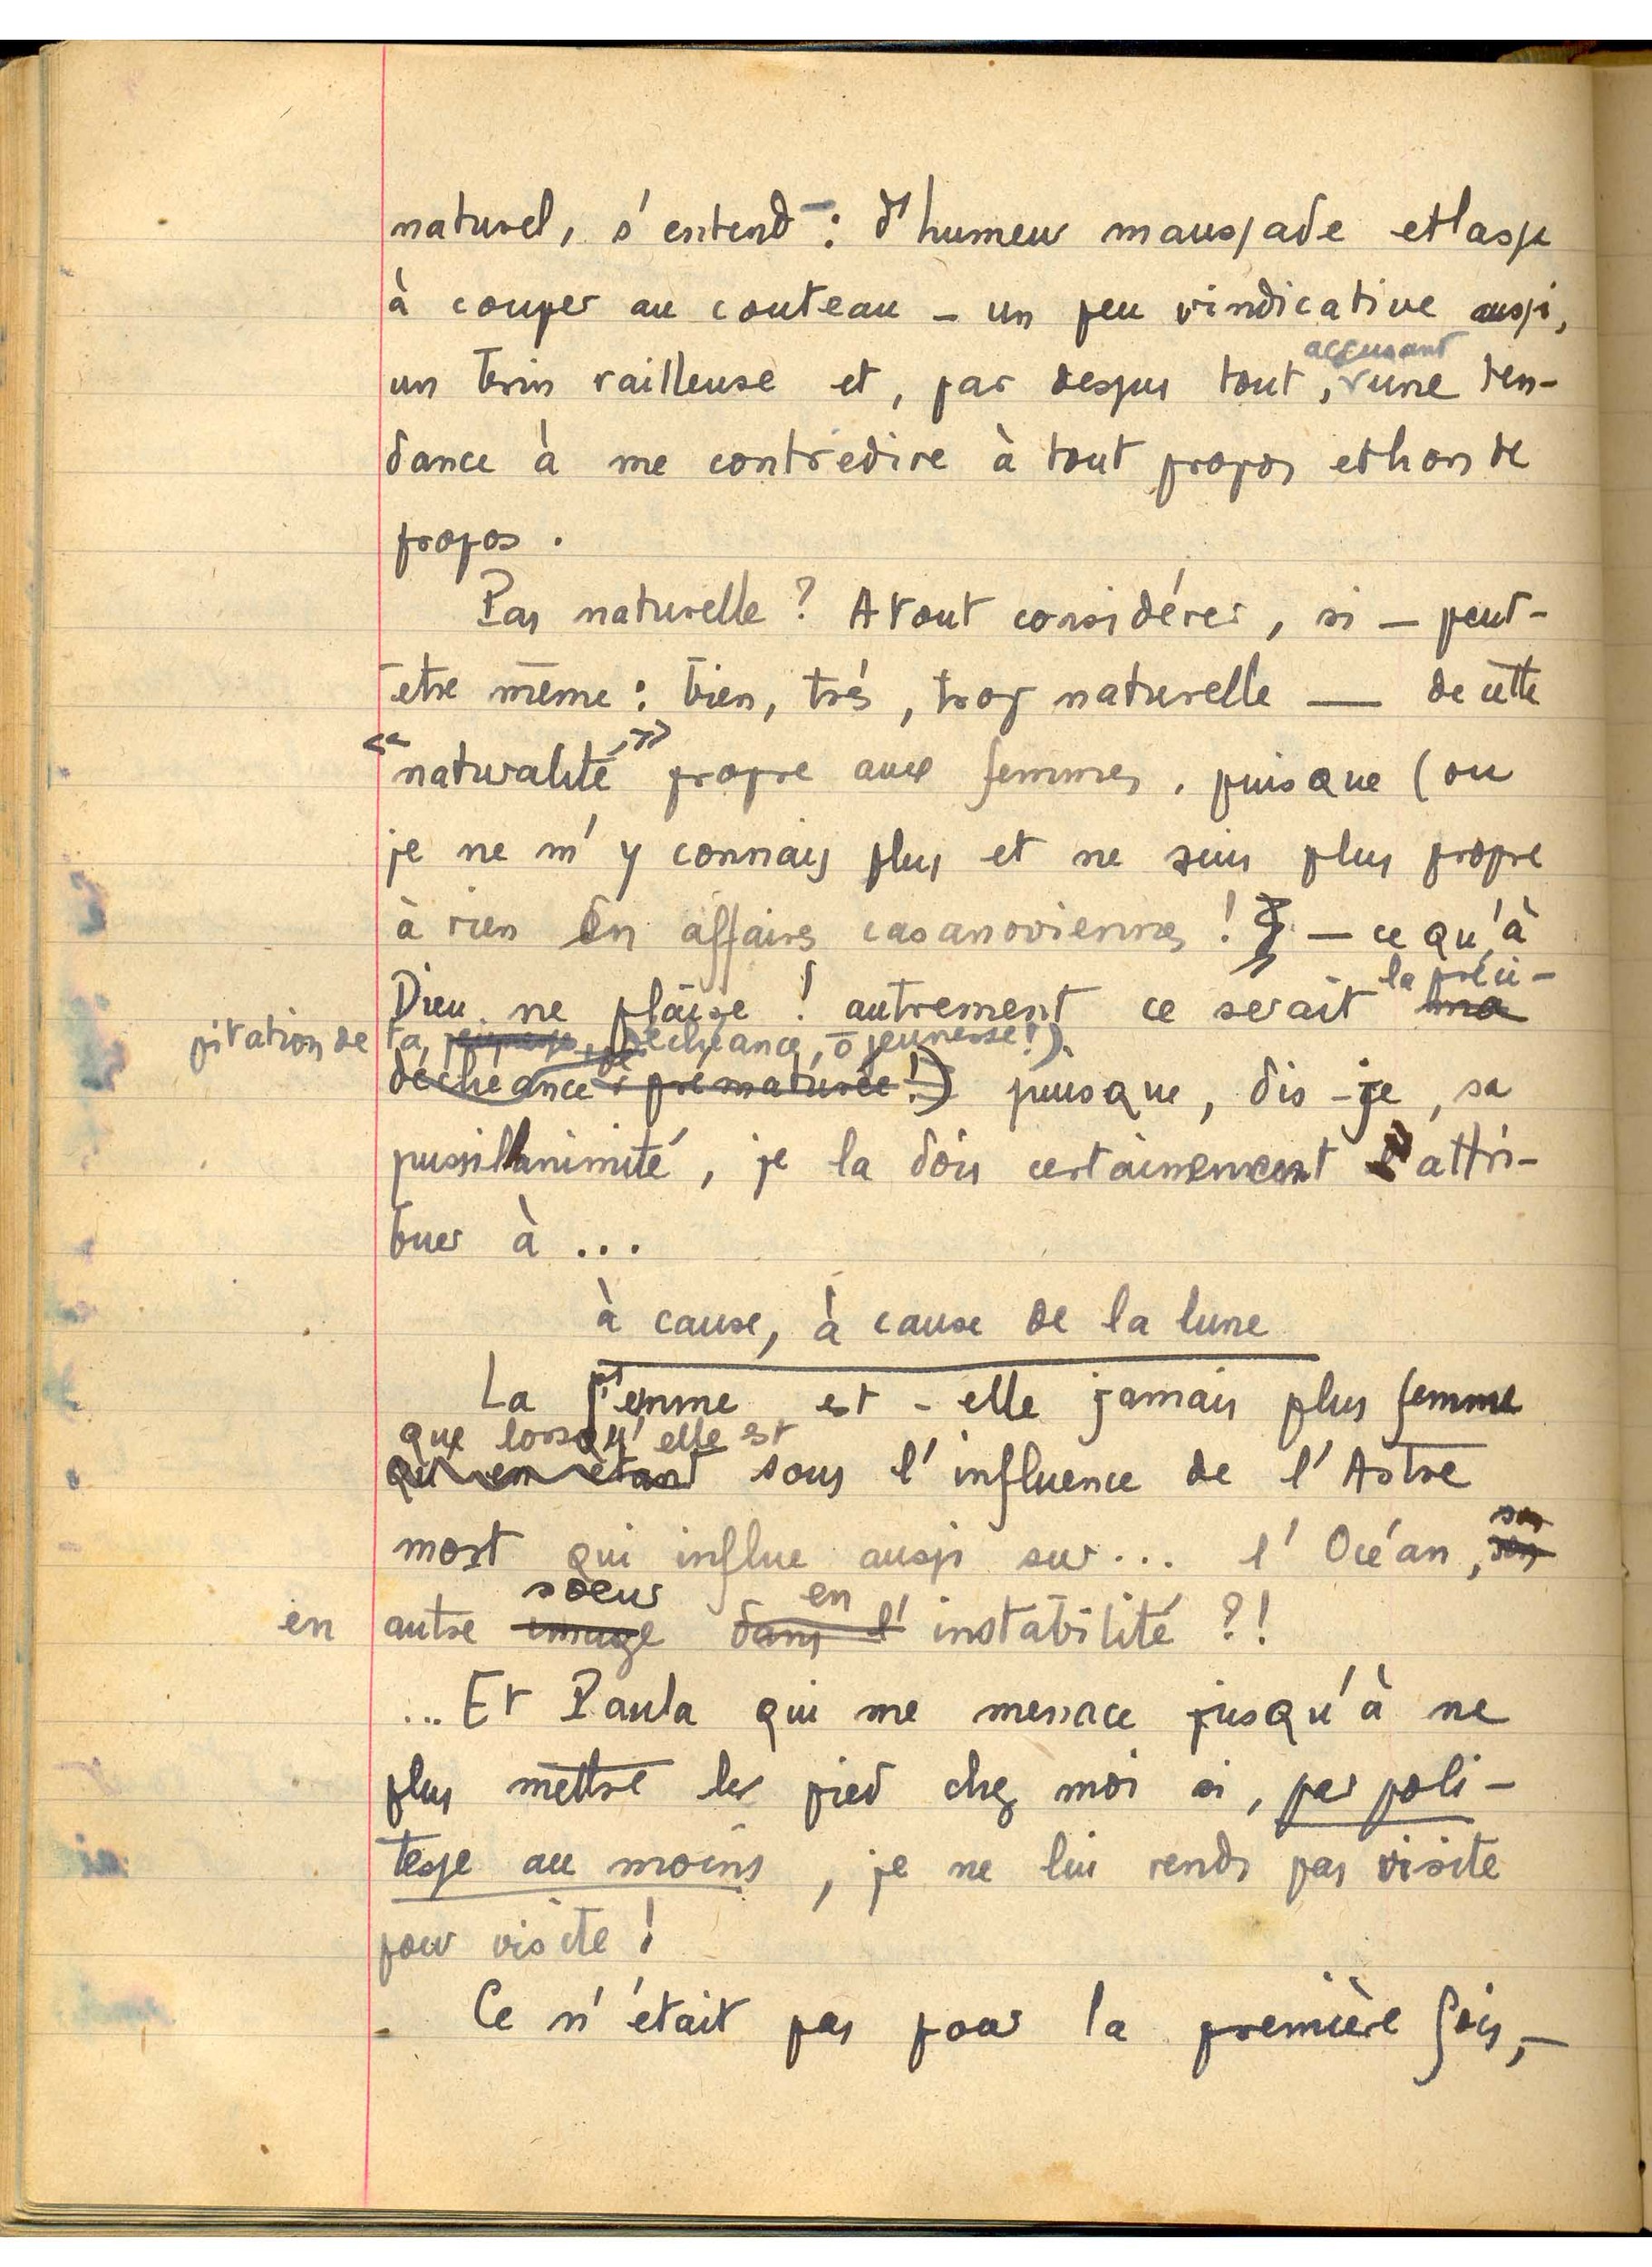 naturel, s'entend - : d'humeur maussade et lasse
à couper au couteau - un peu vindicative aussi,
un brin railleuse et, par dessus tout, accusant une ten-
dance à me contredire à tout propos et hors de
propos.
Pas naturelle ? A tout considérer, si — peut-
être même : bien, très, trop naturelle — de cette
"naturalité" propre aux femmes, puisque (ou
je ne m'y connais plus et ne suis plus propre
à rien en affaires casanoviennes ! — ce qu'à
Dieu ne plaise ! autrement ce serait ma la préci-
pitation de ta déchéance, ô jeunesse !).
déchéance prématurée !) puisque, dis-je, sa
pusillanimité, je la dois certainement attri-
buer à ...
à cause, à cause de la lune
La femme est-elle jamais plus femme
que lorsqu'elle est
qu'en étant sous l'influence de l'Astre
mort qui influe aussi sur... l'Océan, son
en autre image soeur dans l' en instabilité ?!
... Et Paula qui me menace jusqu'à ne
plus mettre les pied chez moi si, par poli-
tesse au moins, je ne lui rends pas visite
pour visite !
Ce n'était pas pour la première fois, —